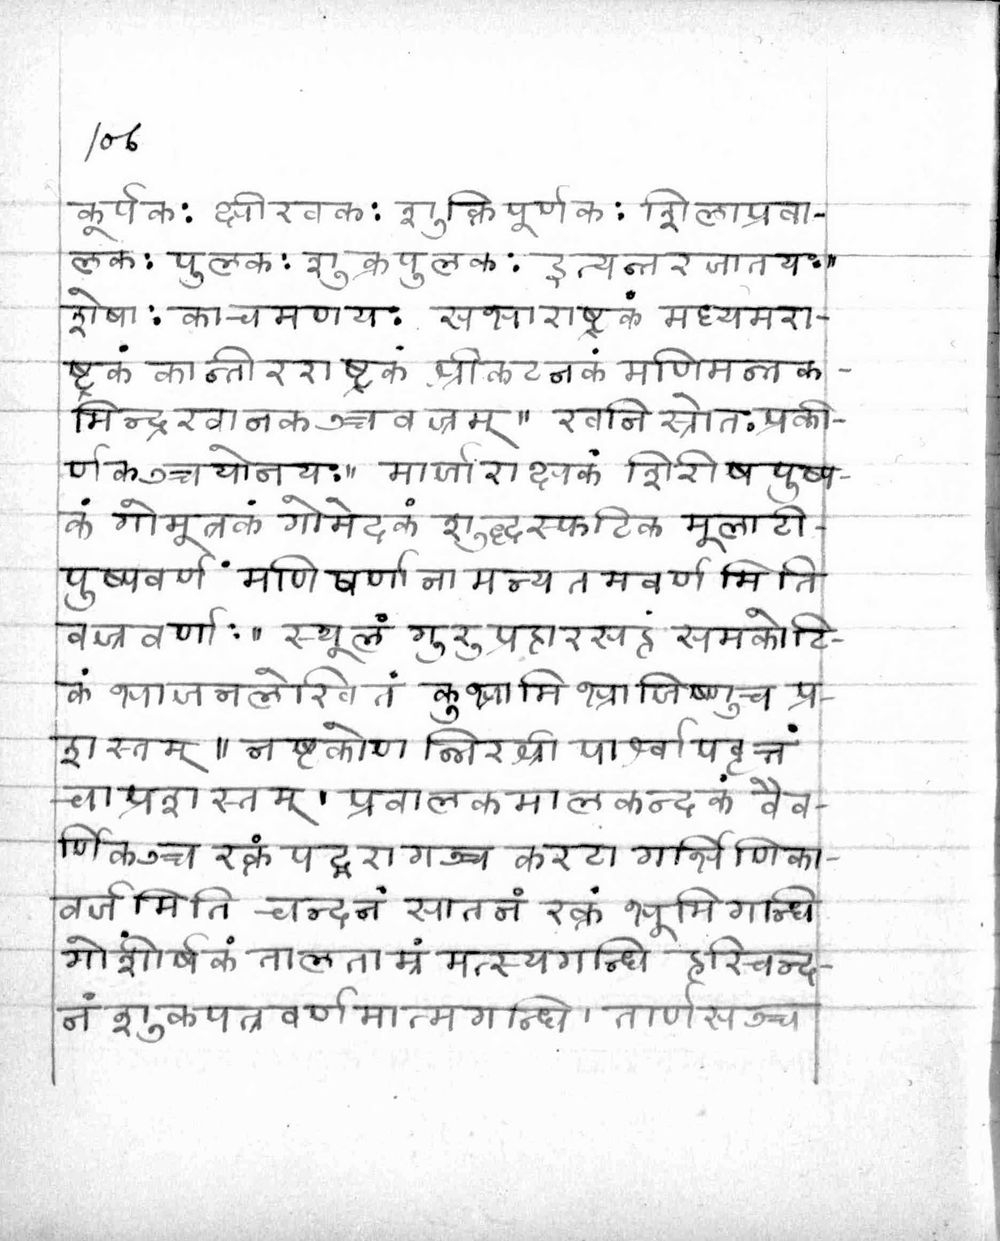 106
कूर्पकः क्षीरवकः शुक्तिपूर्णकः शिलाप्रवा-
लकः पुलकः शुक्रपुलकः इत्यन्तरजातयः॥
शेषाः काचमणयः सभाराष्ट्रकं मध्यमरा-
ष्ट्रकं कान्तीरराष्ट्रकं श्रीकटनकं मणिमन्तक-
मिन्द्रखानकञ्च वज्रम्॥ खनिस्रोतःप्रकी-
र्णकञ्च योनयः॥ मार्जाराक्षकं शिरीषपुष्प-
कं गोमूत्रकं गोमेदकं शुद्धस्फटिक मूलाटी-
पुष्पवर्णं मणिवर्णानामन्यतमवर्णमिति
वज्रवर्णाः॥ स्थूलं गुरु प्रहारसहं समकोटि-
कं भाजनलेखितं कुभ्रामि भ्राजिष्णु च प्र-
शस्तम्॥ नष्टकोणन्निरश्री पार्श्वापवृत्तं
चाप्रशस्तम्। प्रवालकमालकन्दकं वैव-
र्णिकञ्च रक्तं पद्मरागञ्च करटा गर्भिणिका-
वर्जमिति चन्दनं सातनं रक्तं भूमिगन्धि
गोशीर्षकं तालताम्रं मत्स्यगन्धि हरिचन्द-
नं शुकपत्रवर्णमात्मगन्धि। तार्णसञ्च